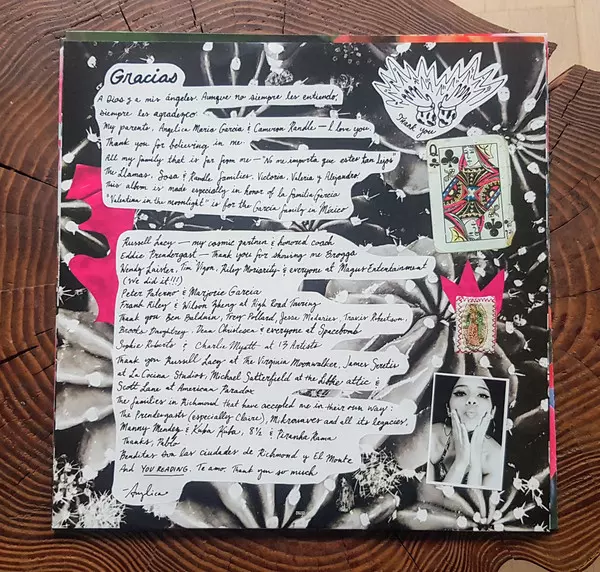 Gracias
A Dios y a mis ángeles. Aunque no siempre les entiendo,
siempre les agradezco.
My parents, Angelica Maria Garcia & Cameron Randle — I love you.
Thank you for believing in me.
All my family that is far from me — "No me importa que estes tan lejos"
The Llamas, Sosa & Randle families, Victoria, Valeria y Alejandro!
This album is made especially in honor of la familia Garcia
"Valentina in the moonlight" is for the Garcia family in México
Thank you
Q
Russell Lacy — my cosmic partner & honored coach
Eddie Prendergast — Thank you for showing me Brogga
Wendy Laister, Tim Vigon, Riley Moriarity & everyone at Magus Entertainment
(We did it!!!)
Peter Paterno & Marjorie Garcia
Frank Riley & Wilson Zheng at High Road Touring
Thank you Ben Baldwin, Trey Pollard, Jesse Medaries, Travis Robertson,
Brooke Daughtrey, Dean Christesen & everyone at Spacebomb
Sophie Roberts & Charlie Myatt at 13 Artists
Thank you Russell Lacy at The Virginia Moonwalker, James Soretis
at La Cocina Studios, Michael Satterfield at the Little attic &
Scott Lane at American Paradox
The families in Richmond that have accepted me in their own way:
The Prendergasts (especially Claire), Mikrowaves and all its legacies!
Manny Mendez & Kuba Kuba, 8½ & Piranha Rama
Thanks,
Benditas son las ciudades de Richmond y El Monte
And YOU READING. Te amo. Thank you so much
—Angélica